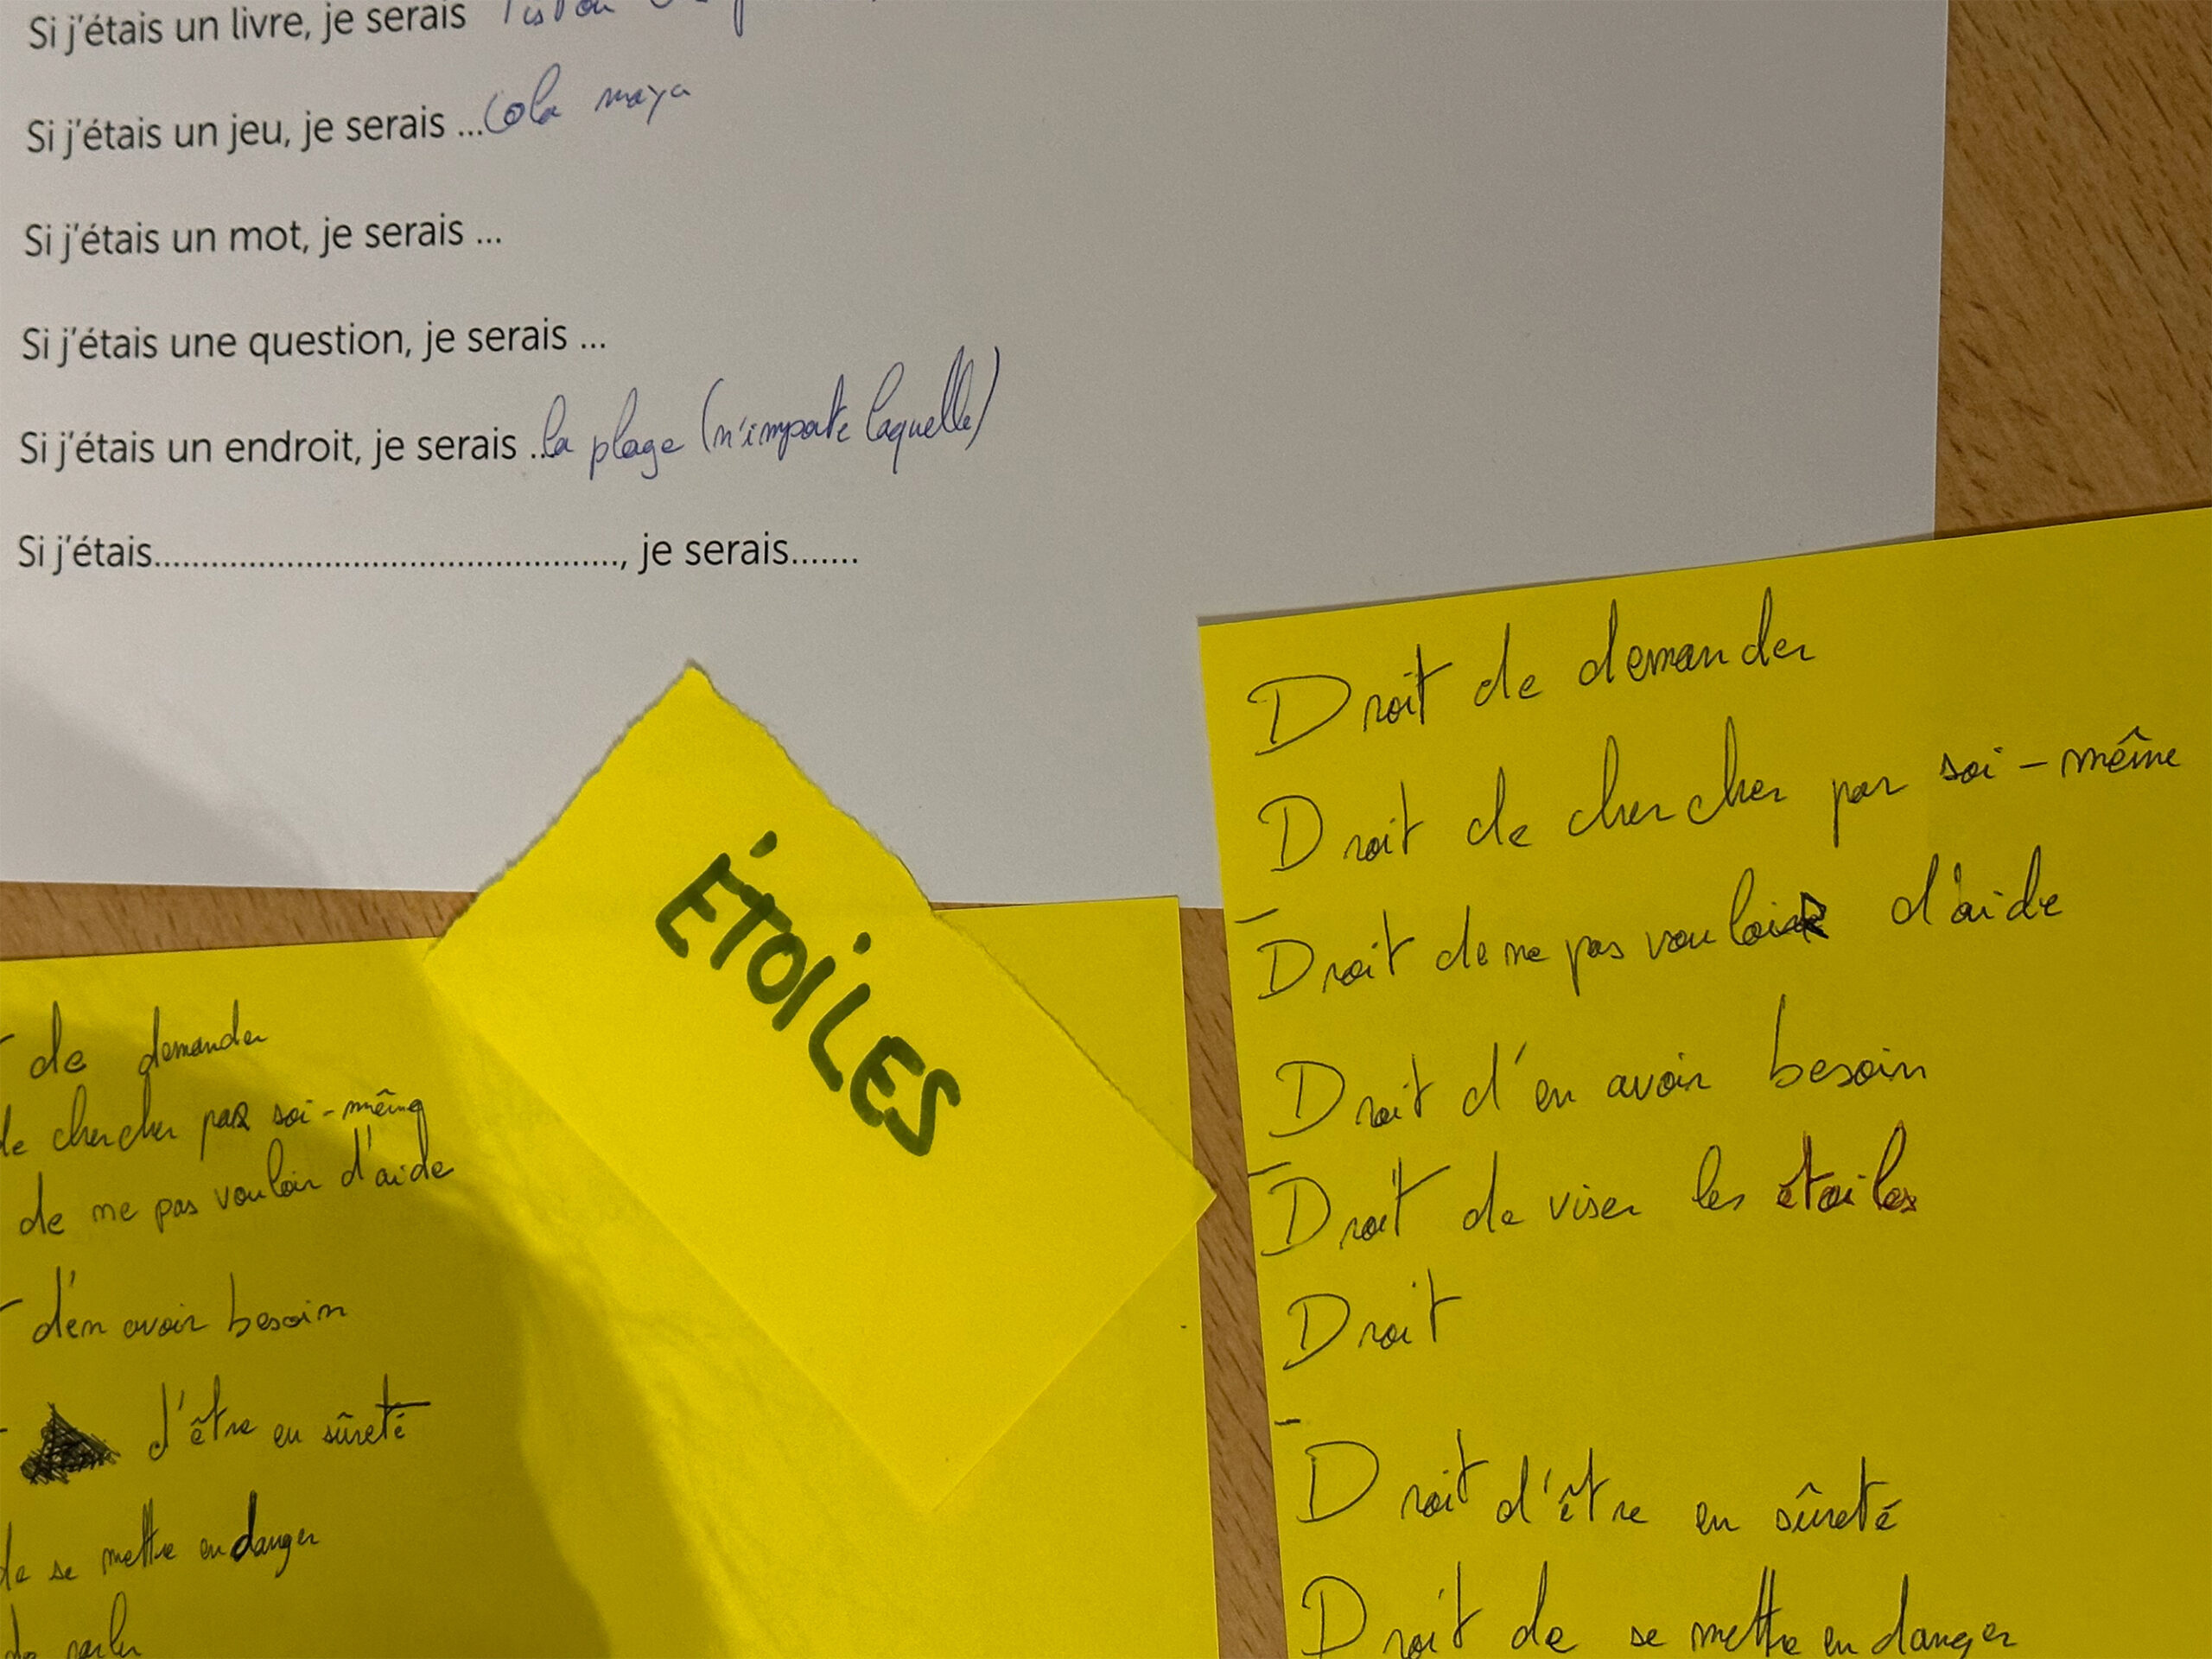 Si j'étais un livre, je serais
Si j'étais un jeu, je serais ... Cola maya
Si j'étais un mot, je serais ...
Si j'étais une question, je serais ...
Si j'étais un endroit, je serais ...la plage (n'importe laquelle)
Si j'étais................................................., je serais.......
ÉTOILES
de demander
de chercher par soi-même
de ne pas vouloir d'aide
d'en avoir besoin
d'être en sûreté
de se mettre en danger
de parler
Droit de demander
Droit de chercher par soi-même
Droit de ne pas vouloir d'aide
Droit d'en avoir besoin
Droit de viser les étoiles
Droit
Droit d'être en sûreté
Droit de se mettre en danger